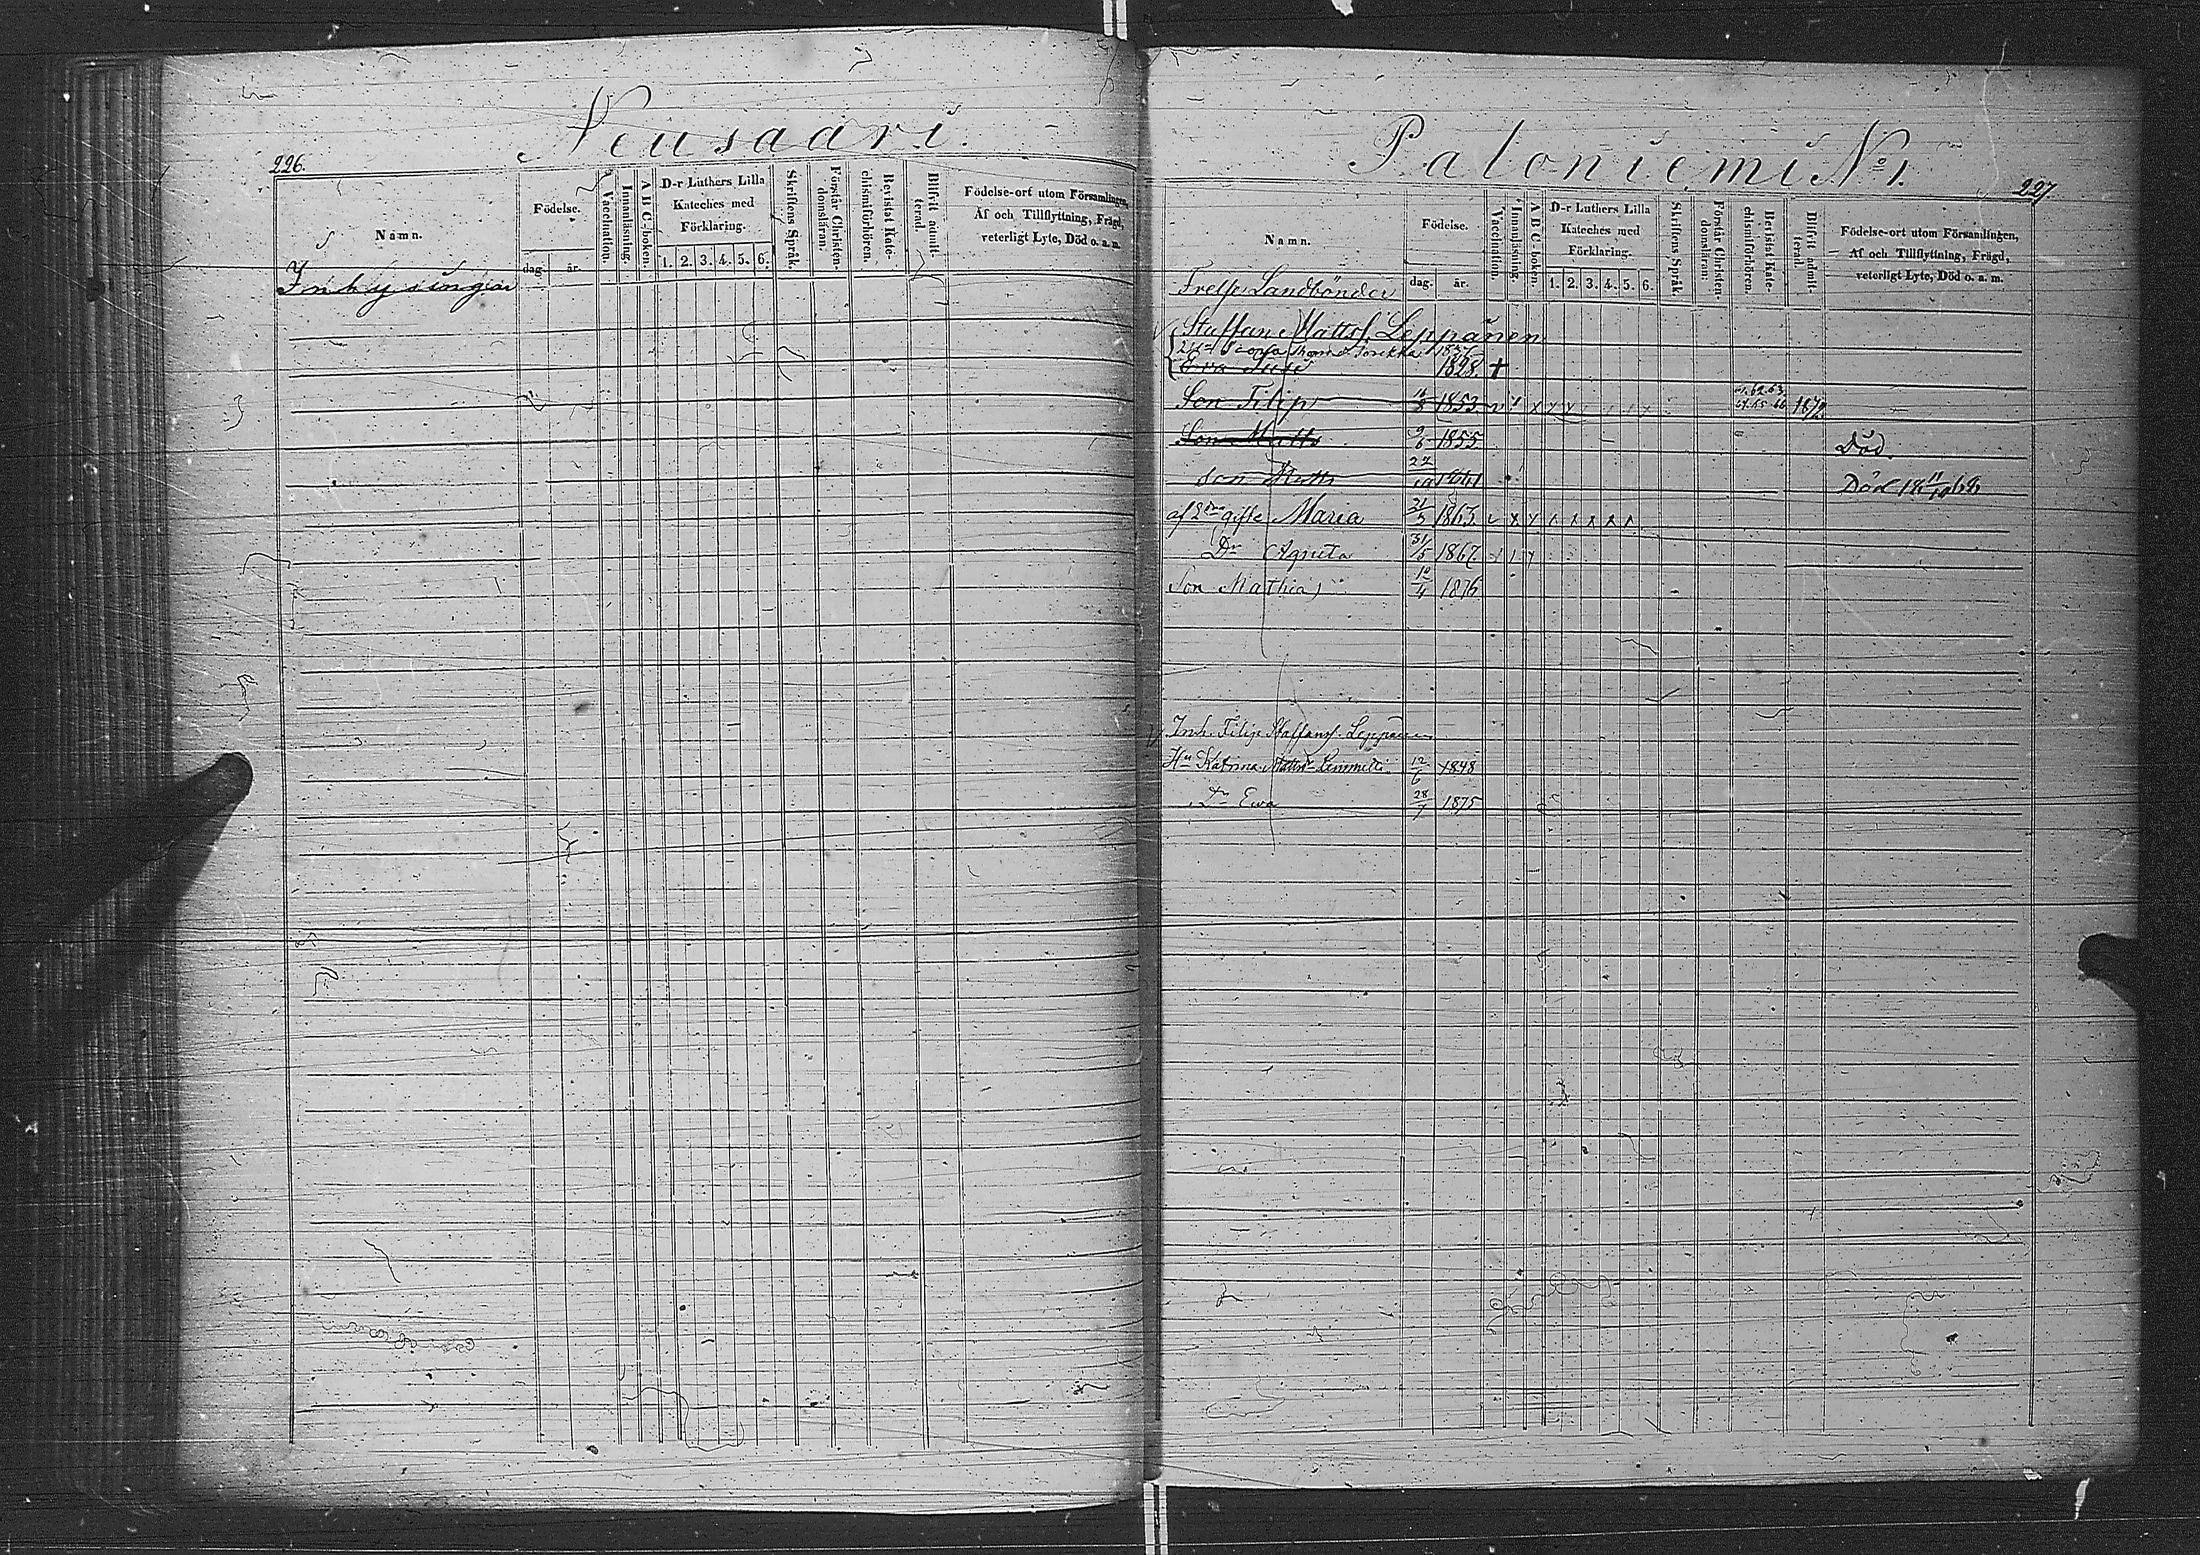 Neusaari.
226.
Namn.
Födelse.
dag.
år.
Vaccination.
Innanläsning.
A B C-boken.
D-r Luthers Lilla
Kateches med
Förklaring.
1. 2. 3. 4. 5. 6.
Skriftens Språk.
Förstår Christen-
domsläran.
Bevistat Kate-
chismiförhören.
Blifvit admit-
terad.
Födelse-ort utom Församlingen,
Af och Tillflyttning, Frägd,
veterligt Lyte, Död o. a. m.
Inhysingar
Paloniemi No 1.
227.
Namn.
Födelse.
dag.
år.
Vaccination.
Innanläsning.
A B C-boken.
D-r Luthers Lilla
Kateches med
Förklaring.
1. 2. 3. 4. 5. 6.
Skriftens Språk.
Förstår Christen-
domsläran.
Bevistat Kate-
chismiförhören.
Blifvit admit-
terad.
Födelse-ort utom Församlingen,
Af och Tillflyttning, Frägd,
veterligt Lyte, Död o. a. m.
Frelse Landbönder
Staffan Mattsf. Leppänen
Thomasd. 1837
1828 +
Son Filip 1853 1872
Son Matts 9/6 1855 Död.
Son Matts 27/10 1861 Död
af 2dra gifte Maria 31/5 1863
Dr Agneta 31/5 1867
Son Mathias 12/4 1876
Inh. Filip Staffansf. Leppänen
Hu Katrina Mattsd. Lemmitti 12/6 1848
Dr Ewa 28/7 1875